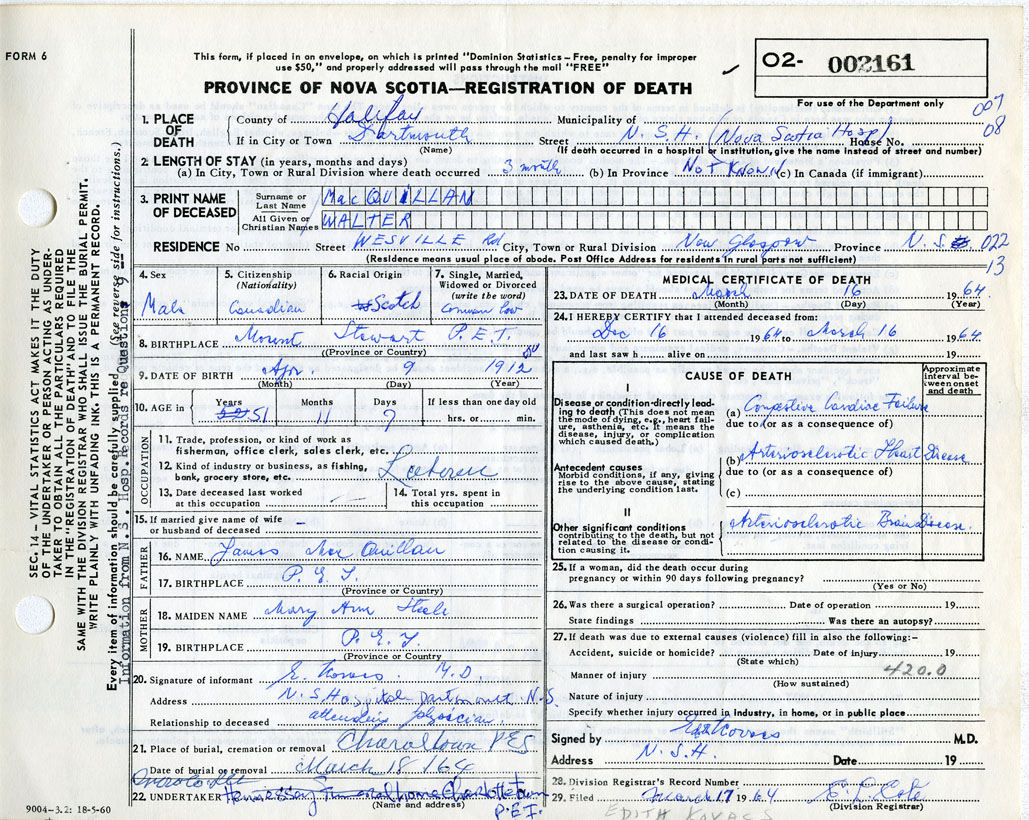 FORM 6
This form, if placed in an envelope, on which is printed "Dominion Statistics – Free, penalty for improper
use $50," and properly addressed will pass through the mail "FREE"
O2- 002161
For use of the Department only
PROVINCE OF NOVA SCOTIA—REGISTRATION OF DEATH
007
08
1. PLACE OF DEATH
County of Halifax Municipality of
If in City or Town Dartmouth Street N.S.H. (Nova Scotia Hosp House No.
(Name) (If death occurred in a hospital or institution, give the name instead of street and number)
2. LENGTH OF STAY (in years, months and days)
(a) In City, Town or Rural Division where death occurred 3 month (b) In Province Not Known (c) In Canada (if immigrant)
3. PRINT NAME OF DECEASED
Surname or Last Name MacQUILLAN
All Given or Christian Names WALTER
RESIDENCE No Street WESVILLE Rd City, Town or Rural Division New Glasgow Province N.S. 022
13
(Residence means usual place of abode. Post Office Address for residents in rural parts not sufficient)
4. Sex Male
5. Citizenship (Nationality) Canadian
6. Racial Origin Scotch
7. Single, Married, Widowed or Divorced (write the word) common law
8. BIRTHPLACE Mount Stewart P.E.I.
(Province or Country)
9. DATE OF BIRTH Apr. 9 1912
(Month) (Day) (Year)
10. AGE in Years 51 Months 11 Days 7 If less than one day old hrs. or min.
OCCUPATION
11. Trade, profession, or kind of work as
fisherman, office clerk, sales clerk, etc.
12. Kind of industry or business, as fishing,
bank, grocery store, etc.
Laborer
13. Date deceased last worked
at this occupation
14. Total yrs. spent in
this occupation
15. If married give name of wife –
or husband of deceased
FATHER
16. NAME James MacQuillan
17. BIRTHPLACE P.E.I.
(Province or Country)
MOTHER
18. MAIDEN NAME Mary Ann Steele
19. BIRTHPLACE P.E.I.
(Province or Country)
20. Signature of informant E. Kovacs M.D.
Address N.S. Hospital Dartmouth N.S.
Relationship to deceased attending physician
21. Place of burial, cremation or removal Charoltown PEI
Date of burial or removal March 18 /64
22. UNDERTAKER Hennessey Funeral home Charlottetown
P.E.I.
(Name and address)
9004-3.2: 18-5-60
MEDICAL CERTIFICATE OF DEATH
23. DATE OF DEATH March 16 1964
(Month) (Day) (Year)
24. I HEREBY CERTIFY that I attended deceased from:
Dec 16 1964 to March 16 1964
and last saw h alive on 19
CAUSE OF DEATH
Approximate interval between onset and death
I
Disease or condition directly leading to death (This does not mean the mode of dying, e.g., heart failure, asthenia, etc. It means the disease, injury, or complication which caused death.)
(a) Congestive Cardiac Failure
due to (or as a consequence of)
Antecedent causes
Morbid conditions, if any, giving rise to the above cause, stating the underlying condition last.
(b) Arteriosclerotic Heart Disease
due to (or as a consequence of)
(c)
II
Other significant conditions
contributing to the death, but not related to the disease or condition causing it.
Arteriosclerotic Brain Disease.
25. If a woman, did the death occur during
pregnancy or within 90 days following pregnancy?
(Yes or No)
26. Was there a surgical operation? Date of operation 19
State findings Was there an autopsy?
27. If death was due to external causes (violence) fill in also the following:–
Accident, suicide or homicide? Date of injury 19
(State which)
420.0
Manner of injury
(How sustained)
Nature of injury
Specify whether injury occurred in industry, in home, or in public place
Signed by Edit Kovacs M.D.
Address N.S.H. Date 19
28. Division Registrar's Record Number
29. Filed March 17 1964
(Division Registrar)
EDITH KOVACS
SEC. 14 – VITAL STATISTICS ACT MAKES IT THE DUTY
OF THE UNDERTAKER OR PERSON ACTING AS UNDER-
TAKER TO OBTAIN ALL THE PARTICULARS REQUIRED
IN THE "REGISTRATION OF DEATH" AND TO FILE THE
SAME WITH THE DIVISION REGISTRAR WHO SHALL ISSUE THE BURIAL PERMIT.
WRITE PLAINLY WITH UNFADING INK. THIS IS A PERMANENT RECORD.
Every item of information should be carefully supplied. (See reverse side for instructions.)
Information from N.S. Hosp. Records re Questions